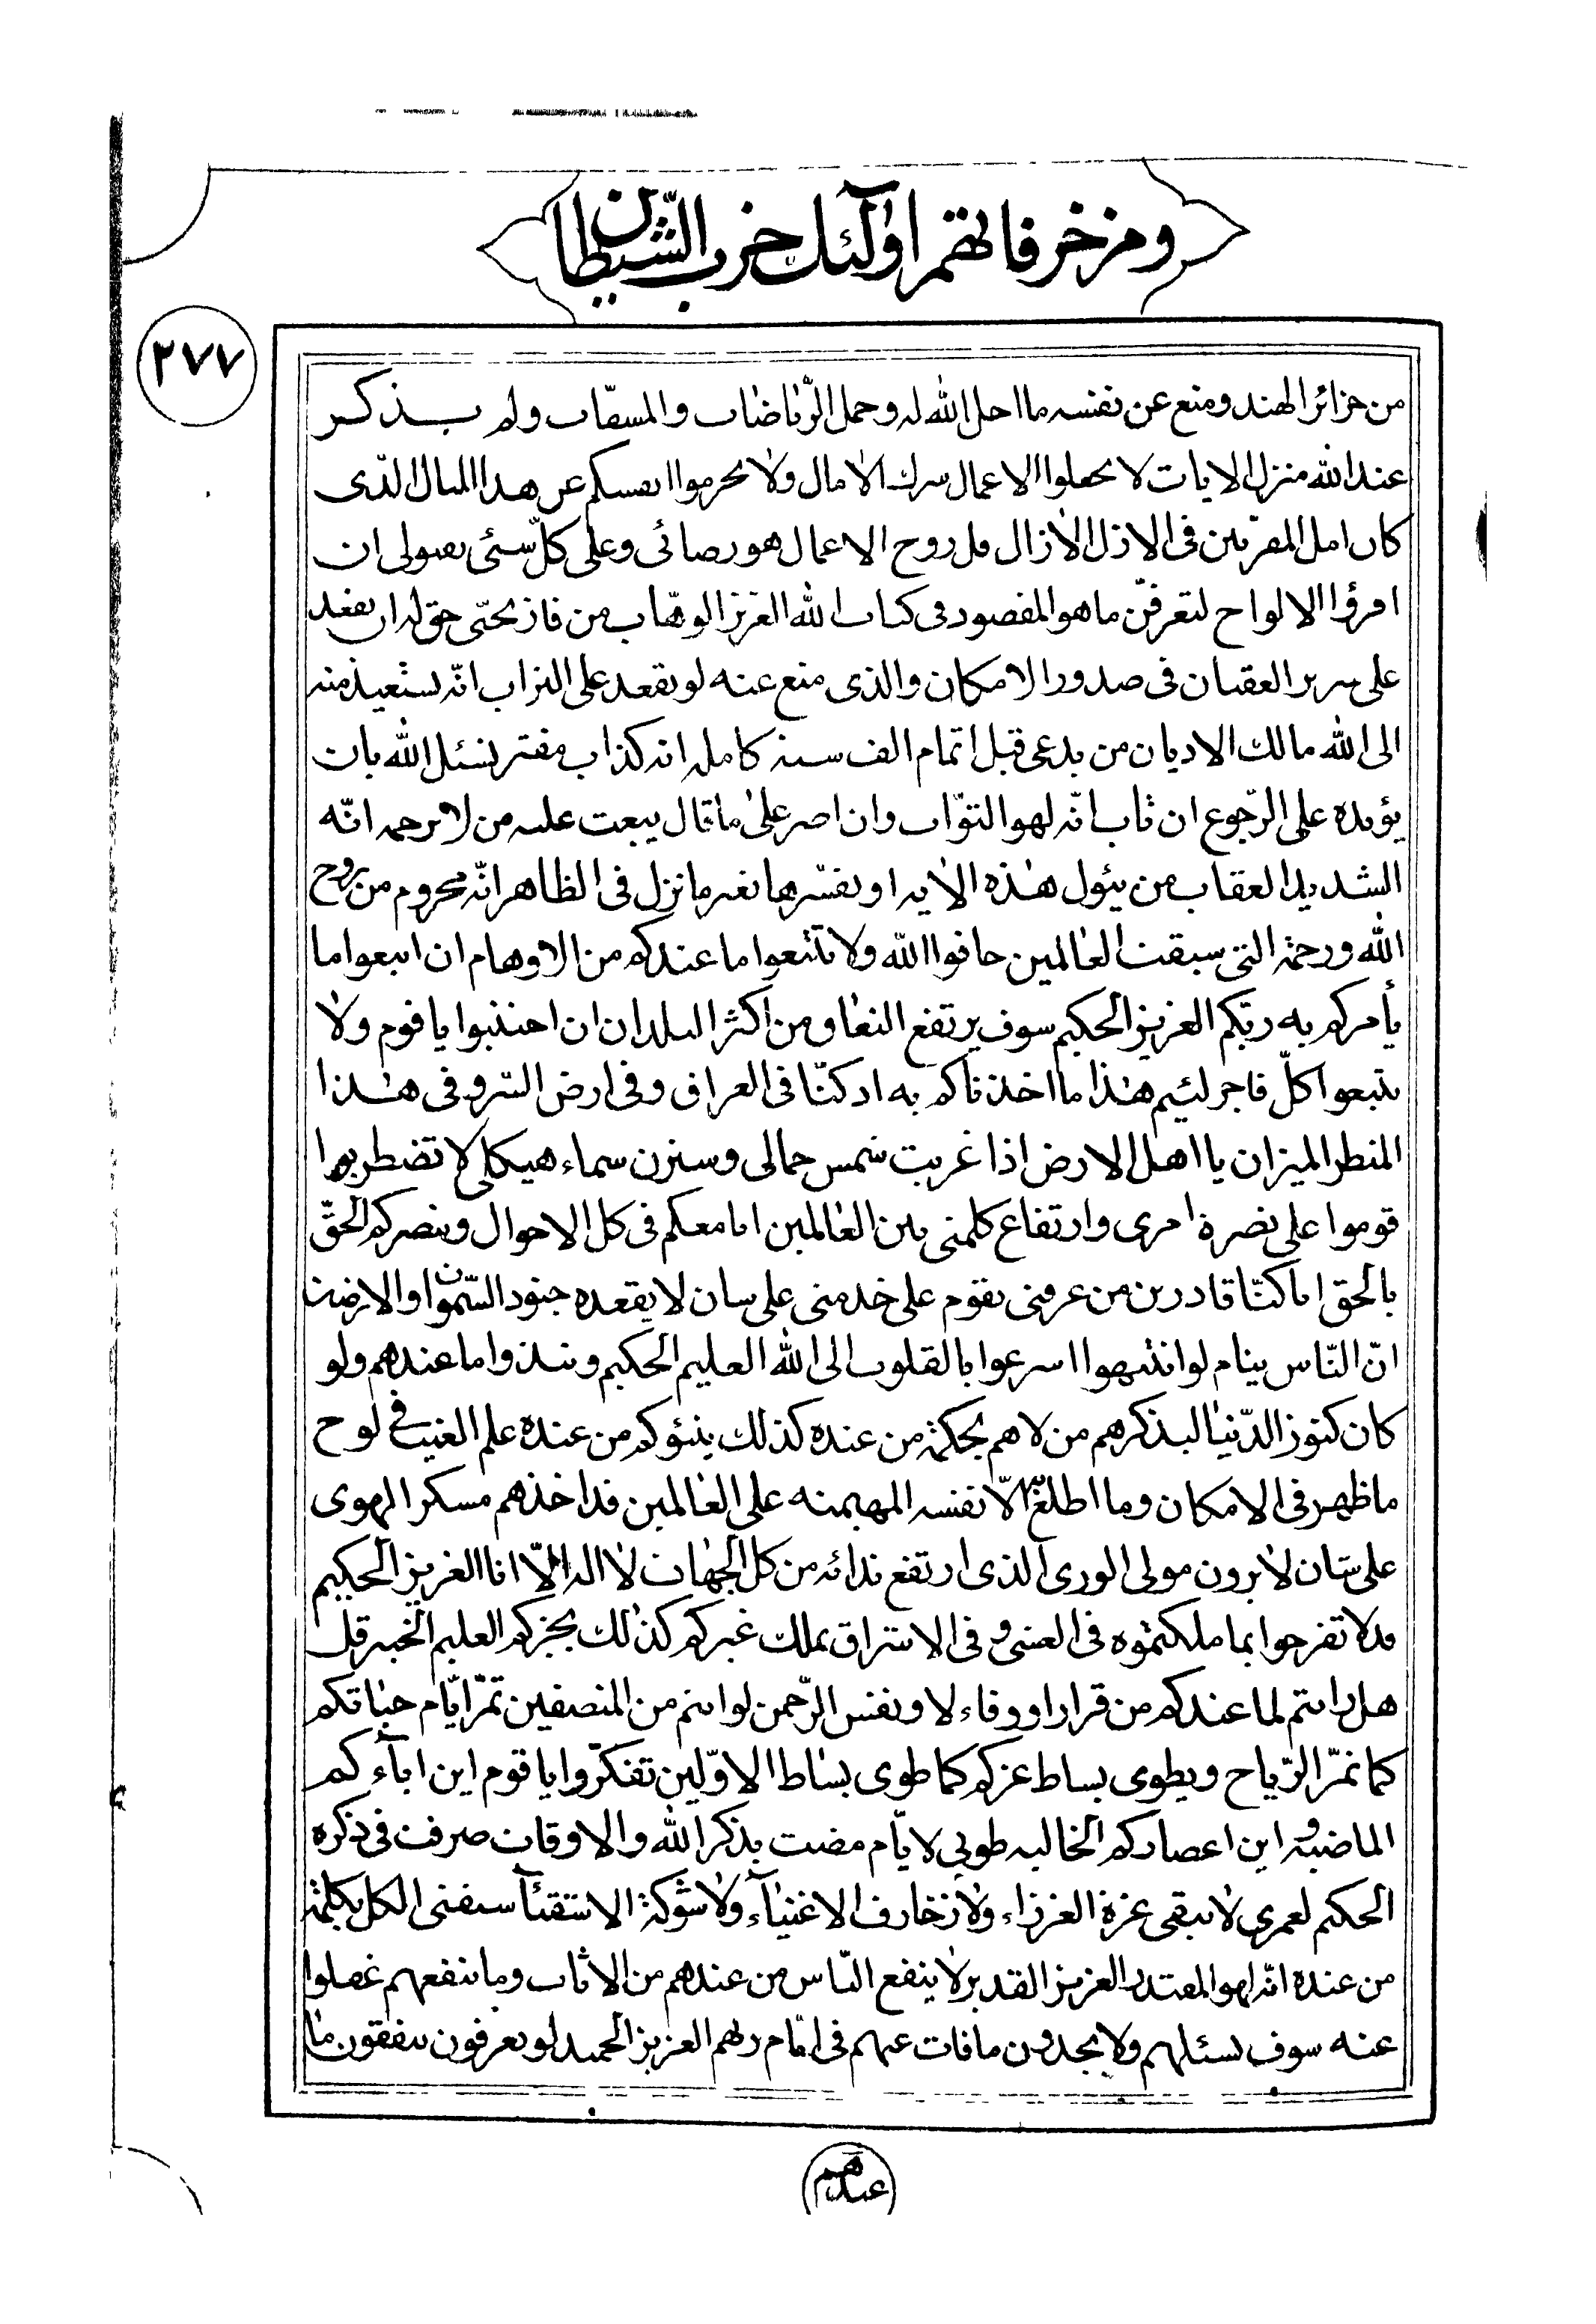 ومزخرفاتهم اولٰئك حزب الشّيطان
٢٧٧
من جزائر الهند ومنع عن نفسه ما احل الله له وحمل الرّياضات والمشقّات ولم يذكر
عند الله منزل الايات لا تجعلوا الاعمال شرك الامال ولا تحرموا انفسكم عن هذا المال الّذى
كان امل المقربين فى الازل الازال قل روح الاعمال هو رضائى وعلى كلّ شئى بقبولى ان
اقرؤا الالواح لتعرفنّ ما هو المقصود فى كتاب الله العزيز الوهّاب من فاز بحبّى حق له ان يقعد
على سرير العقيان فى صدور الامكان والذى منع عنه لو يقعد على التراب انّه يستعيذ منه
الى الله مالك الاديان من يدعى قبل اتمام الف سنه كامله انه كذاب مفتر نسئل الله بان
يؤيده على الرّجوع ان تاب انّه لهو التوّاب وان اصر علىٰ ما قال يبعث عليه من لا يرحمه انّه
الشديد العقاب من يئول هٰذه الاٰيه او يفسّرها بغير ما نزل فى الظاهر انّه محروم من روح
الله ورحمته التى سبقت العالمين خافوا الله ولا تتبعوا ما عندكم من الاوهام ان اتبعوا ما
يأمركم به ربّكم العزيز الحكيم سوف يرتفع النعاق من اكثر البلدان ان اجتنبوا يا قوم ولا
تتبعوا كلّ فاجر لئيم هٰذا ما اخذناكم به اذ كنّا فى العراق وفى ارض السّر وفى هٰذا
المنظر المنير ان يا اهل الارض اذا غربت شمس جمالى وسترت سماء هيكلى لا تضطربوا
قوموا على نصرة امرى وارتفاع كلمتى بين العالمين انا معكم فى كل الاحوال وننصركم بالحقّ
بالحق انا كنّا قادرين من عرفنى يقوم على خدمتى على شان لا يقعده جنود السّموات والارضين
انّ النّاس ينام لو انتبهوا اسرعوا بالقلوب الى الله العليم الحكيم ونبذوا ما عندهم ولو
كان كنوز الدّنيا ليذكرهم موليٰهم بحكمة من عنده كذلك ينبؤكم من عنده علم الغيب فى لوح
ما ظهر فى الامكان وما اطلع الّا نفسه المهيمنه على العالمين قد اخذهم سكر الهوى
على شان لا يرون مولى الورى الذى ارتفع ندائه من كل الجهات لا اله الّا انا العزيز الحكيم
قل لا تفرحوا بما ملكتموه فى العشى وفى الاشراق يملك غيركم كذلك يخبركم العليم الخبير قل
هل رايتم لما عندكم من قرار او وفاء لا ونفس الرّحمن لو انتم من المنصفين تمرّ ايّام حياتكم
كما تمرّ الرّياح ويطوى بساط عزكم كما طوى بساط الاوّلين تفكّروا يا قوم اين اباٰءكم
الماضيه واين اعصاركم الخاليه طوبى لايّام مضت بذكر الله والاوقات صرفت فى ذكره
الحكيم لعمرى لا تبقى عزة العززاء ولا زخارف الاغنياٰء ولا شوكة الاشقياٰء سيفنى الكل بكلمة
من عنده انّه لهو المقتدر العزيز القدير لا ينفع النّاس من عندهم من الاثاث وما ينفعهم غفلوا
عنه سوف يسئلهم ولا يجدون ما فات عنهم فى ايّام ربهم العزيز الحميد لو يعرفون ينفقون ما
عندهم